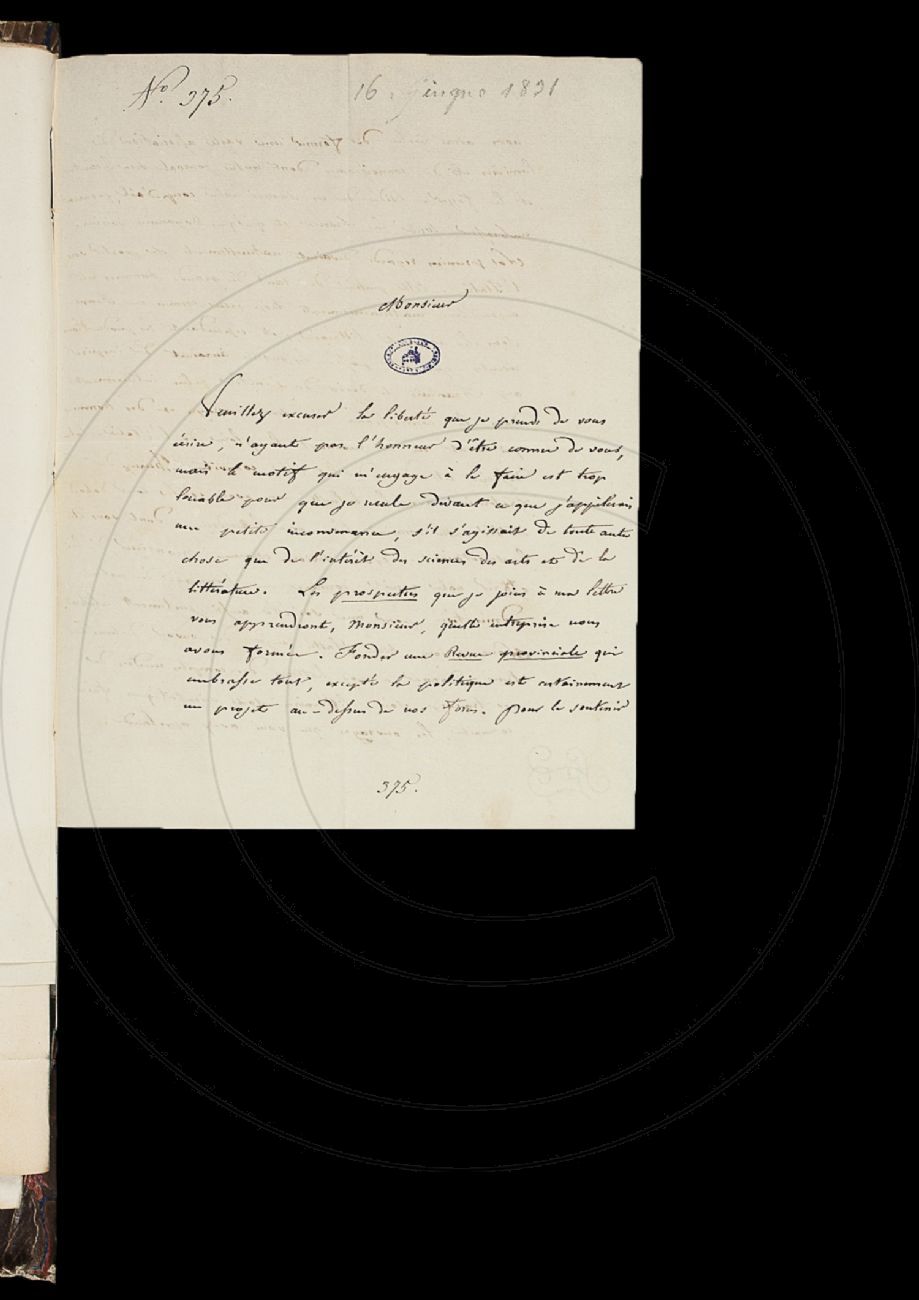 No. 375.
16. Giugno 1831
Monsieur
Veuillez excuser la liberté que je prends de vous
écrire, n'ayant pas l'honneur d'être connu de vous,
mais le motif qui m'engage à le faire est trop
louable pour que je recule devant ce que j'appellerais
une petite inconvenance, s'il s'agissait de toute autre
chose que de l'intérêt des sciences des arts et de la
littérature. Les prospectus que je joins à ma lettre
vous apprendront, Monsieur, quelle entreprise nous
avons formée. Fonder une Revue provinciale qui
embrasse tout, excepté la politique est certainement
un projet au-dessus de nos forces. Pour le soutenir
375.